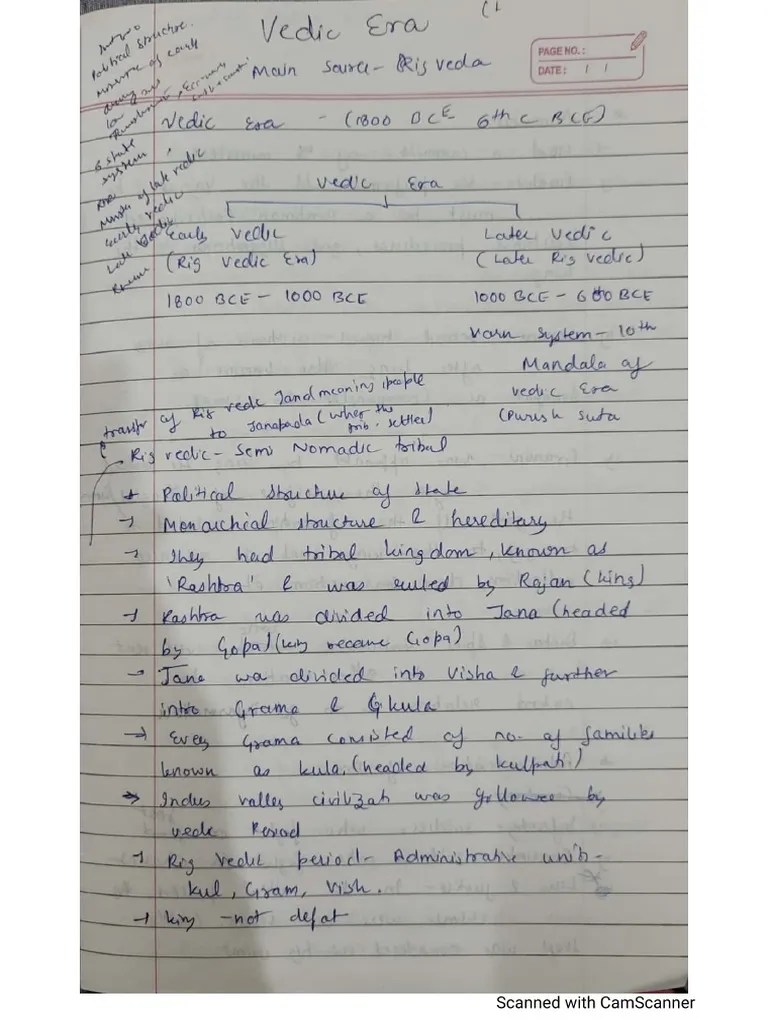 (1
Vedic Era
Main Source - Rig veda
PAGE NO.:
DATE: / /
Political Structure.
of early
state
system
of late vedic
early vedic
Late
Vedic Era - (1800 BCE 6th c BCE)
Vedic Era
Early Vedic
(Rig Vedic Era)
1800 BCE - 1000 BCE
Later Vedic
(Later Rig vedic)
1000 BCE - 600 BCE
Varn System - 10th
Mandala of
vedic Era
(Purush Suta
transfr of Rig vedc Jand meaning people
to Janapada (wher the
trib. settled)
Rig vedic - Semi Nomadic tribal
+ Political Structure of State
→ Monarchical structure & hereditary
→ They had tribal kingdom, known as
'Rashtra' & was ruled by Rajan (king)
→ Rashtra was divided into Jana (headed
by Gopa) (king became Gopa)
→ Jana wa divided into Visha & further
into Grama & kula
→ Every Grama consisted of no. of families
known as kula, (headed by kulpati)
→ Indus valley civilizatn was followee by
vedc Period
→ Rig Vedic period - Administrative units -
kul, Gram, Vish.
→ king - not defat
Scanned with CamScanner